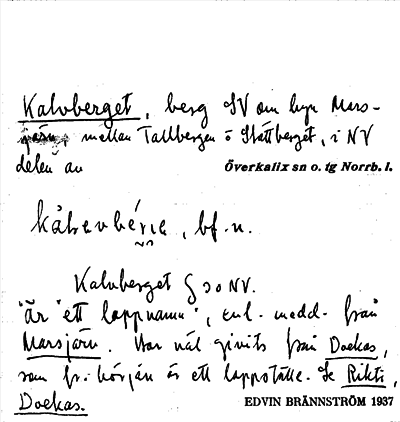 Kalvberget, berg SV om byn Mars-
järv, mellan Tallbergen o Slåttberget, i NV
delen av Överkalix sn o. tg Norrb. l.
bf. n.
Kalvberget § 30 NV.
"är ett lappnamn", enl. medd. från
Marsjärv. Har väl givits från Doekas,
som fr. början är ett lappställe. Se Rikti,
Doekas. EDVIN BRÄNNSTRÖM 1937